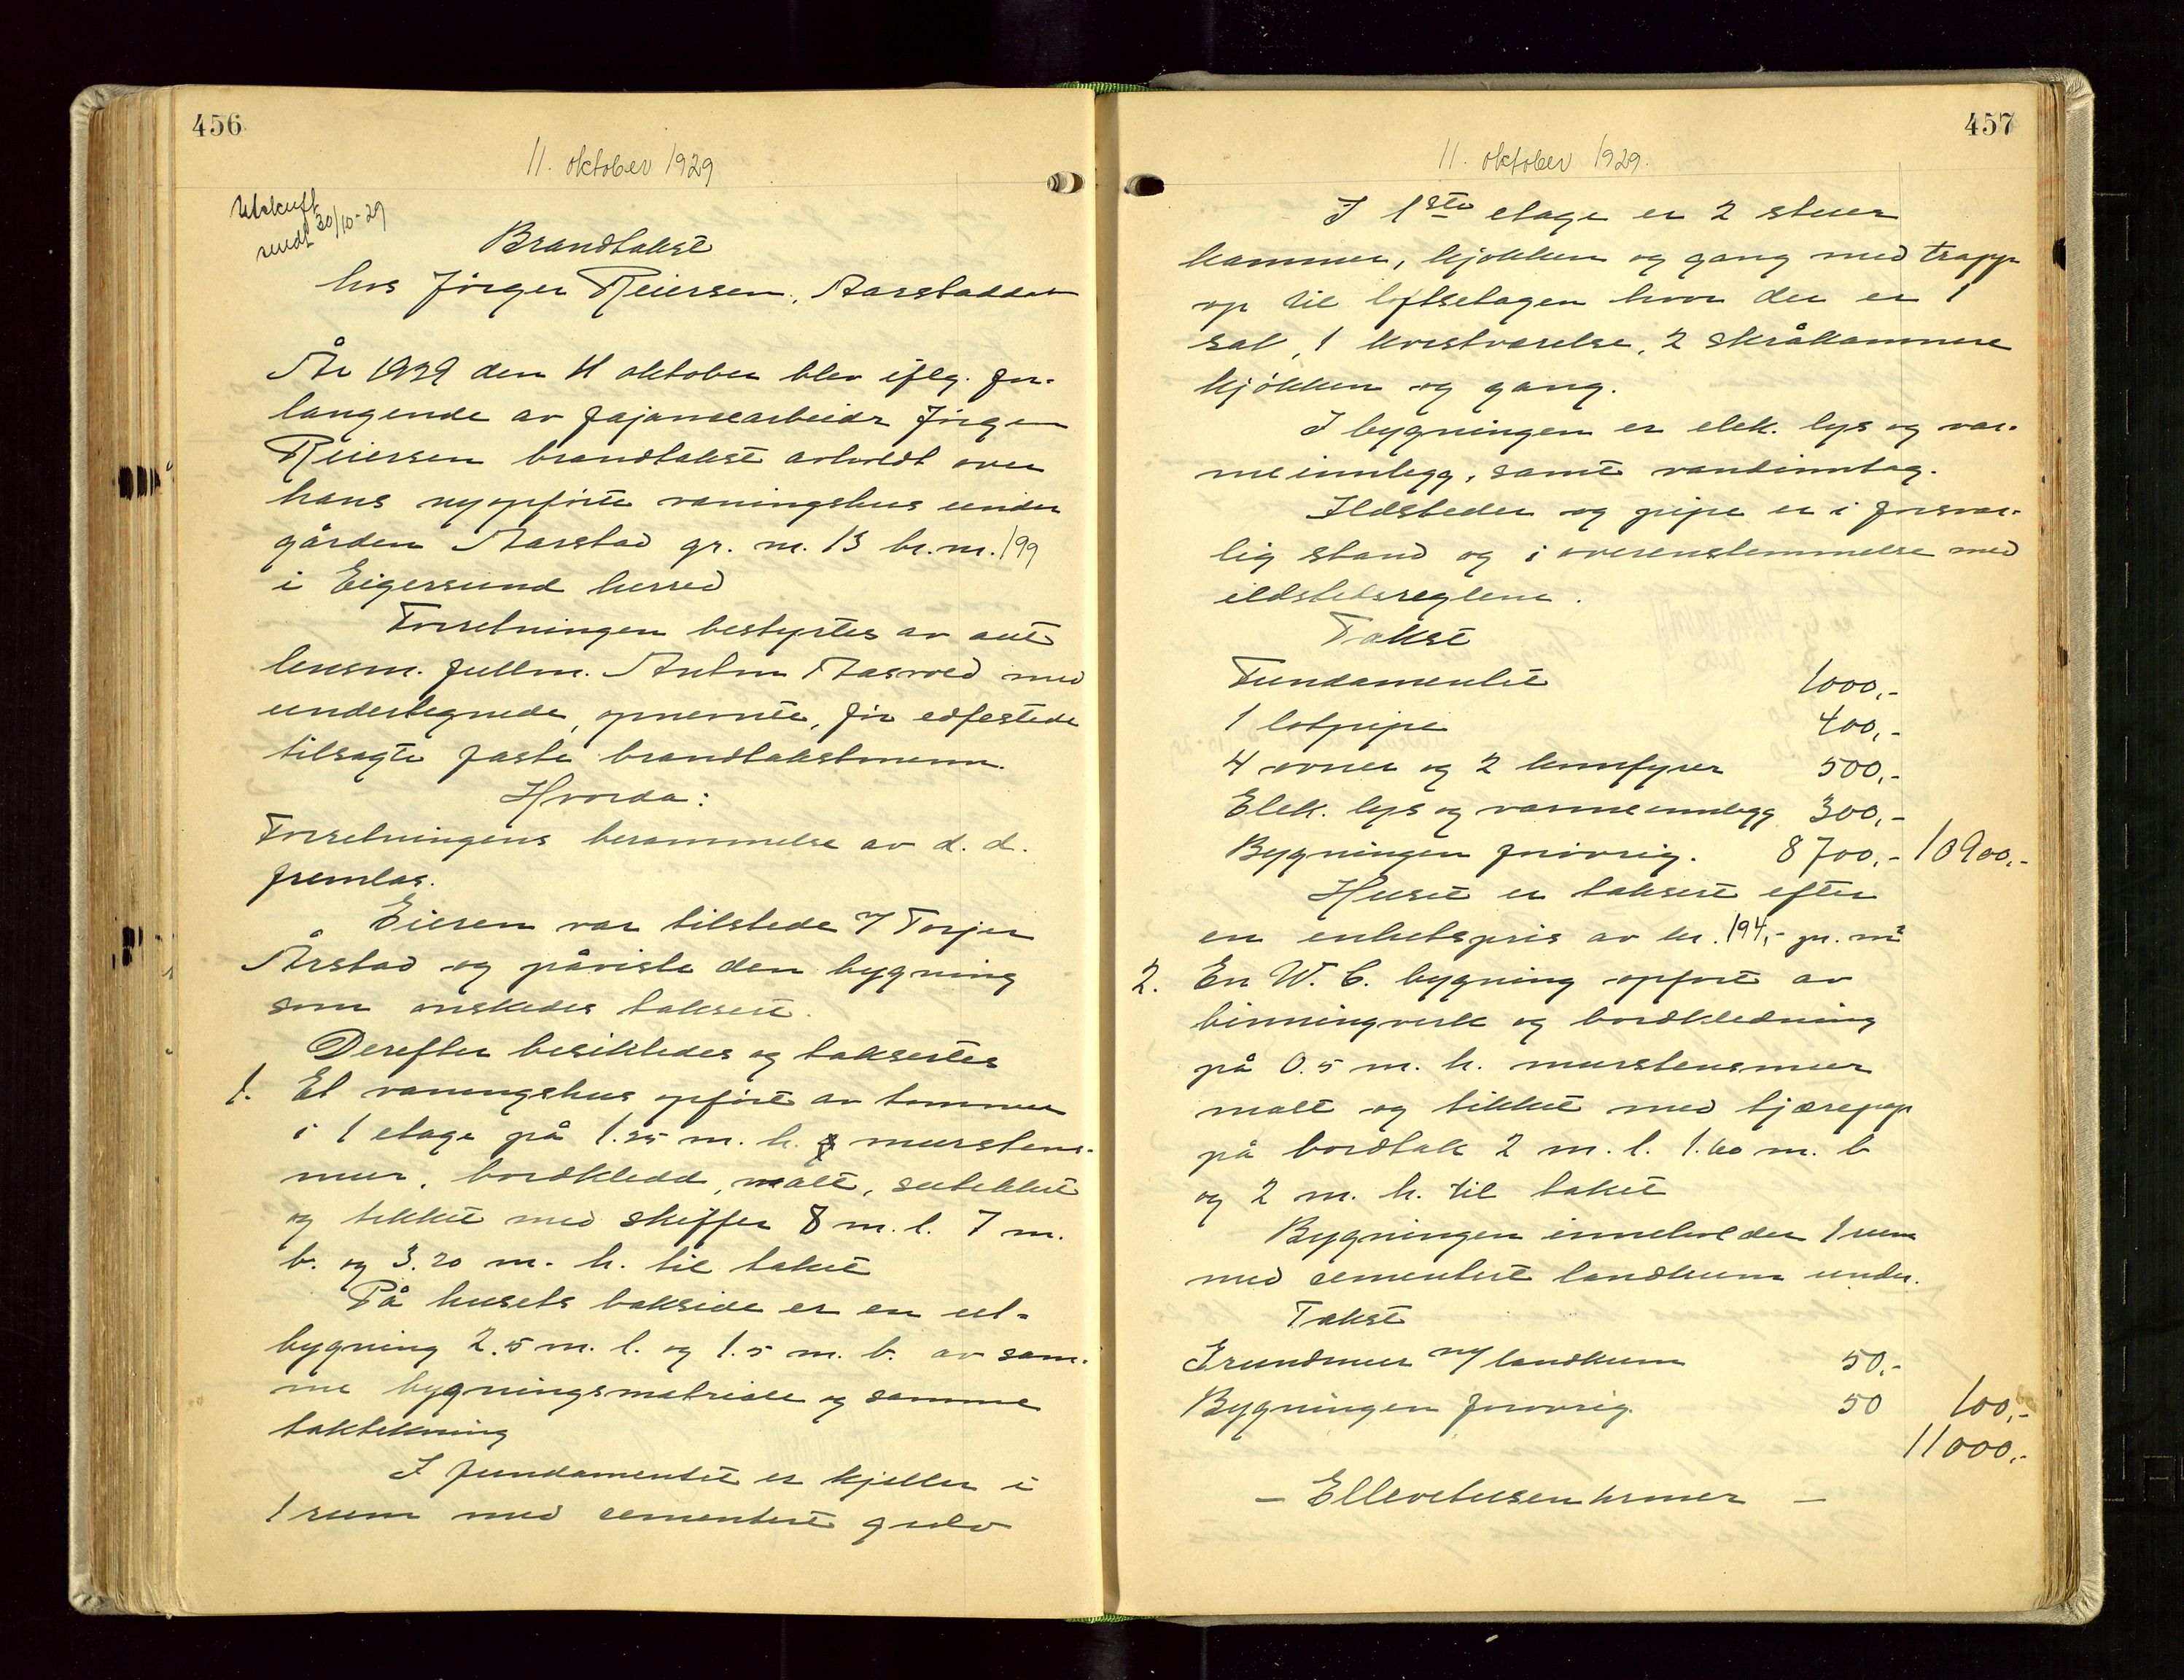 456
11. oktober 1929
Utskrift
sendt 30/10-29
Brandtakst
hos Jörgen Reiersen, Aarstaddalen
År 1929 den 11 oktober blev iflg. for-
langende av fajansearbeider Jörgen
Reiersen brandtakst avholdt over
hans nyopförte vaningshus under
gården Aarstad gr. nr. 13 br. nr. 199
i Eigersund herred
Forretningen bestyrtes av aut
lensm. fullm. Anton Aasvold med
undertegnede, opnevnte, för edfestede
tilsagte faste brandtakstmenn.
Hvorda:
Forretningens berammelse av d. d.
fremlas.
Eieren var tilstede m/ Torjer
Årstad og påviste den bygning
som önskedes taksert.
Derefter besiktedes og taksertes
1. Et vaningshus opfört av tömmer
i 1 etage på 1.25 m. h. murstens-
mur, bordkledd, malt, sutekket
og tekket med skiffer 8 m. l. 7 m.
b. og 3.20 m. h. til taket
På husets bakside er en ut-
bygning 2.5 m. l. og 1.5 m. b. av sam-
me bygningsmatriale og samme
taktekning
I fundamentet er kjeller i
1 rum med sementert gulv
457
11. oktober 1929.
I 1ste etage er 2 stuer
kammer, kjökken og gang med trapp
op til loftsetagen hvor der er 1
sal, 1 kvistværelse, 2 skråkammere
kjökken og gang.
I bygningen er elek. lys og var-
meinnlegg, samt vandinntag.
Ildsteder og pipe er i forsvar-
lig stand og i overenstemmelse med
ildstedsreglene.
Takst
Fundamentet 1000,-
1 lötpipe 400,-
4 ovner og 2 komfyrer 500,-
Elek. lys og varmeinnlegg 300,-
Bygningen forövrig. 8700,- 10900,-
Huset er taksert efter
en enhetspris av kr. 194,- pr. m²
2. En W. C. bygning opfört av
binningverk og bordkledning
på 0.5 m. h. murstensmur
malt og tekket med tjærepap
på bordtak 2 m. l. 1.60 m. b
og 2 m. h. til taket
Bygningen inneholder 1 rum
med sementert landkum under.
Takst
Grundmur m/ landkum 50,-
Bygningen forövrig. 50 100,-
11000,-
— Ellevetusen kroner —